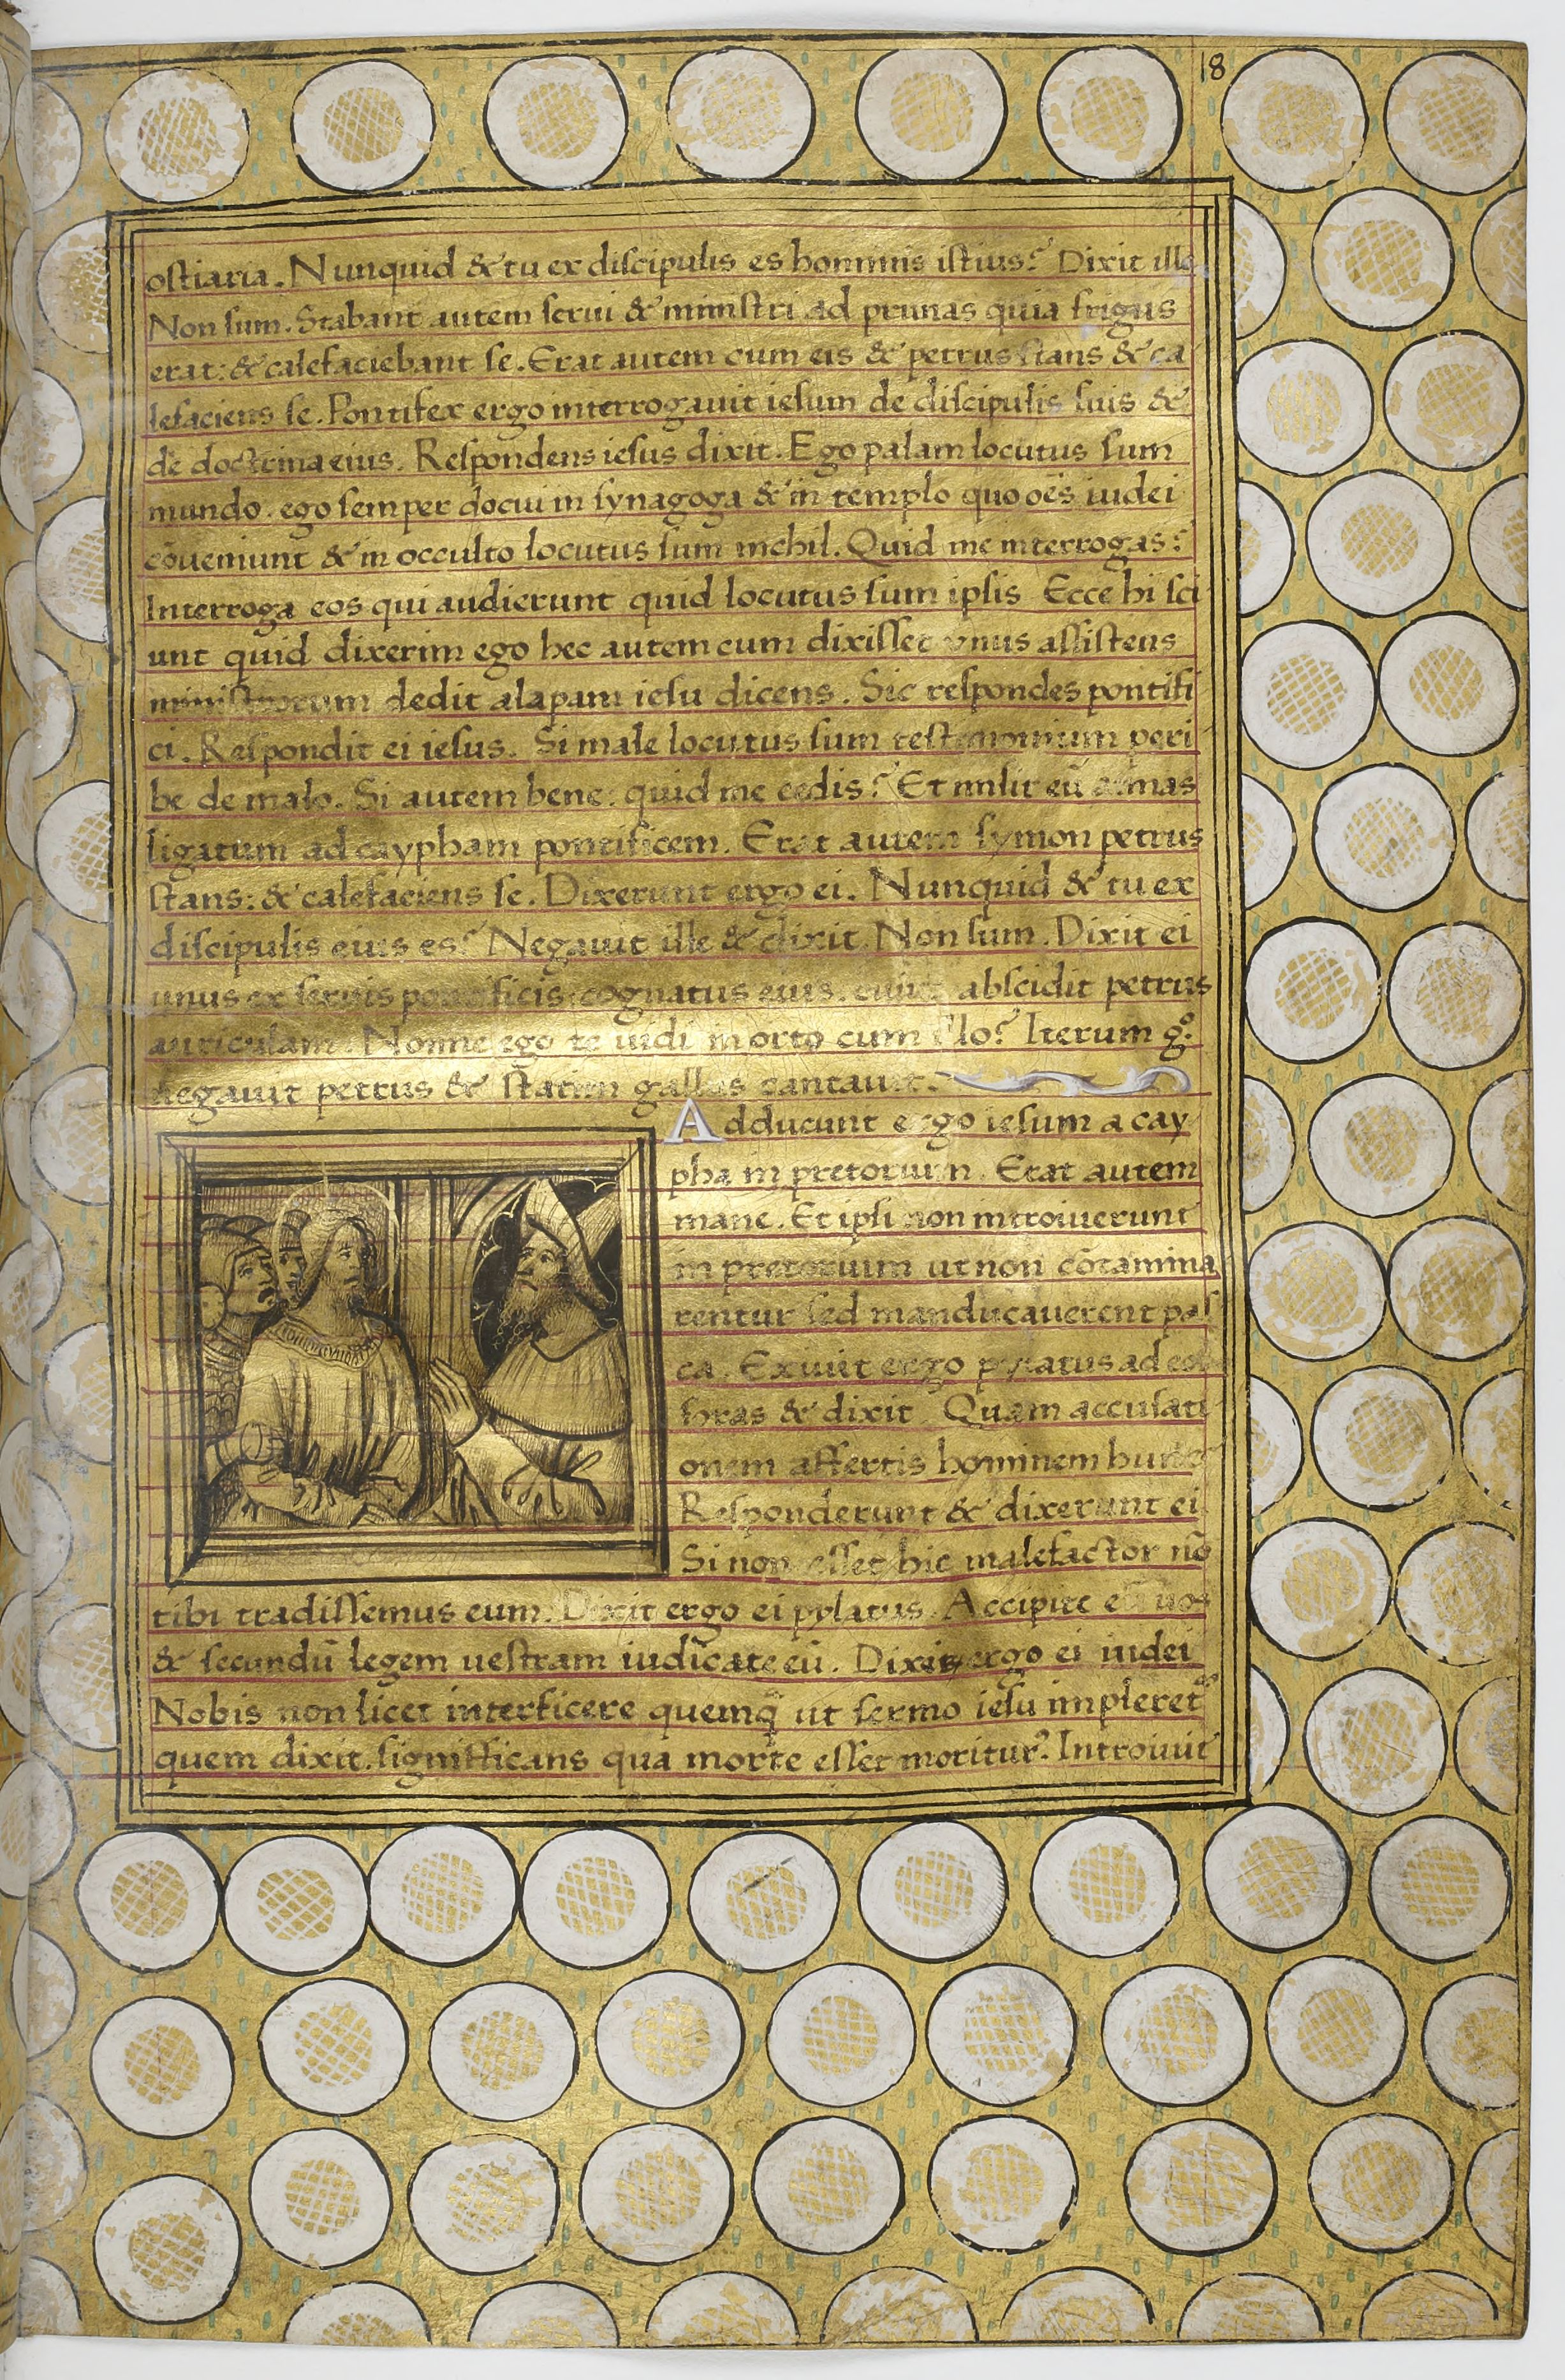 18
ostiaria. Nunquid & tu ex discipulis es hominis istius? Dixit ille
Non sum. Stabant autem serui & ministri ad prunas quia frigus
erat: & calefaciebant se. Erat autem cum eis & petrus stans & ca
lefaciens se. Pontifex ergo interrogauit iesum de discipulis suis &
de doctrina eius. Respondens iesus dixit. Ego palam locutus sum
mundo. ego semper docui in synagoga & in templo quo oēs iudei
cōueniunt & in occulto locutus sum nichil. Quid me interrogas?
Interroga eos qui audierunt quid locutus sum ipsis Ecce hi sci
unt quid dixerim ego hec autem cum dixisset vnus assistens
ministrorum dedit alapam iesu dicens. Sic respondes pontifi
ci. Respondit ei iesus. Si male locutus sum testimonium peri
be de malo. Si autem bene: quid me cedis? Et misit eū annas
ligatum ad caypham pontificem. Erat autem symon petrus
stans: & calefaciens se. Dixerunt ergo ei. Nunquid & tu ex
discipulis eius es? Negauit ille & dixit. Non sum. Dixit ei
unus ex seruis pontificis cognatus eius. cuius abscidit petrus
auriculam. Nonne ego te uidi in orto cum illo? Iterum g°.
negauit petrus & statim gallus cantauit.
Adducunt ergo iesum a cay
pha in pretorium. Erat autem
mane. Et ipsi non introiuerunt
in pretorium ut non cōtamina
rentur sed manducauerent pas
ca. Exiuit ergo pylatus ad eos
foras & dixit. Quam accusati
onem affertis hominem hunc
Responderunt & dixerunt ei
Si non esset hic malefactor nō
tibi tradissemus eum. Dixit ergo ei pylatus. Accipite eū uos
& secundū legem uestram iudicate eū. Dixit ergo ei iudei
Nobis non licet interficere quemq̄ ut sermo iesu impleret
quem dixit. signifficans qua morte esset moritur? Introiuit